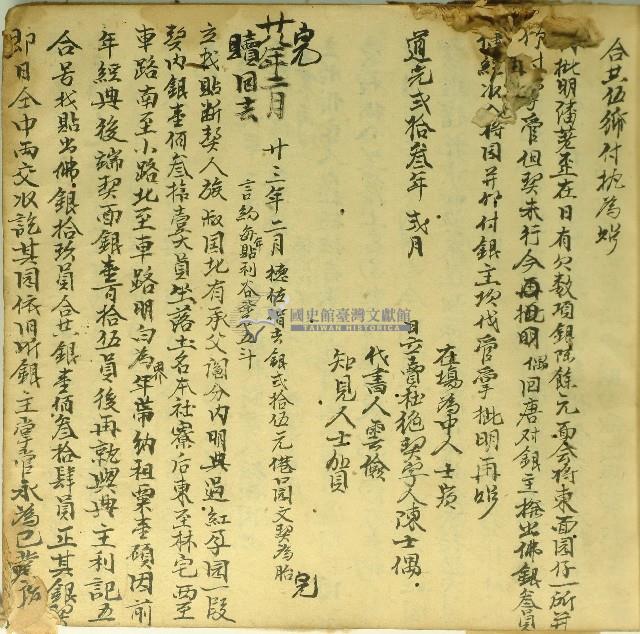 合共伍紙付执為炤
批明陣荖歪在日有欠数項銀陸餘元面会将東面園仔一所并
掌管但契未行今再批明偶回唐对銀主撥出佛銀叁員
将園并付銀主項代管掌批明再炤
在場為中人士
道光弍拾叁年弍月 日立賣杜絶契字人陳士偶
代書人雲儉
知見人士加員
完
廿年二月 廿三年二月 穗 出銀弍拾伍元 園文契為胎 完
贖回去 言約每年貼利谷 五斗
國史館臺灣文獻館
TAIWAN HISTORICA
立找貼断契人族叔国北有承父鬮分内明典過紅孕園一段
契内銀壹佰叁拾壹大員坐落土名本社寮后東至林宅西至
車路南至小路北至車路明白為界年帶納租粟壹碩因前
年經典後端契面銀壹百拾伍員後再就與典主利記五
合号找貼出佛銀拾玖員合共銀壹佰叁拾肆員正其銀
即日仝中両交收訖其園依旧听銀主掌管永為己業